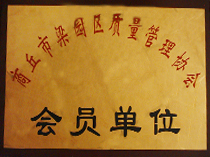 商丘市梁园区质量管理协会
会员单位